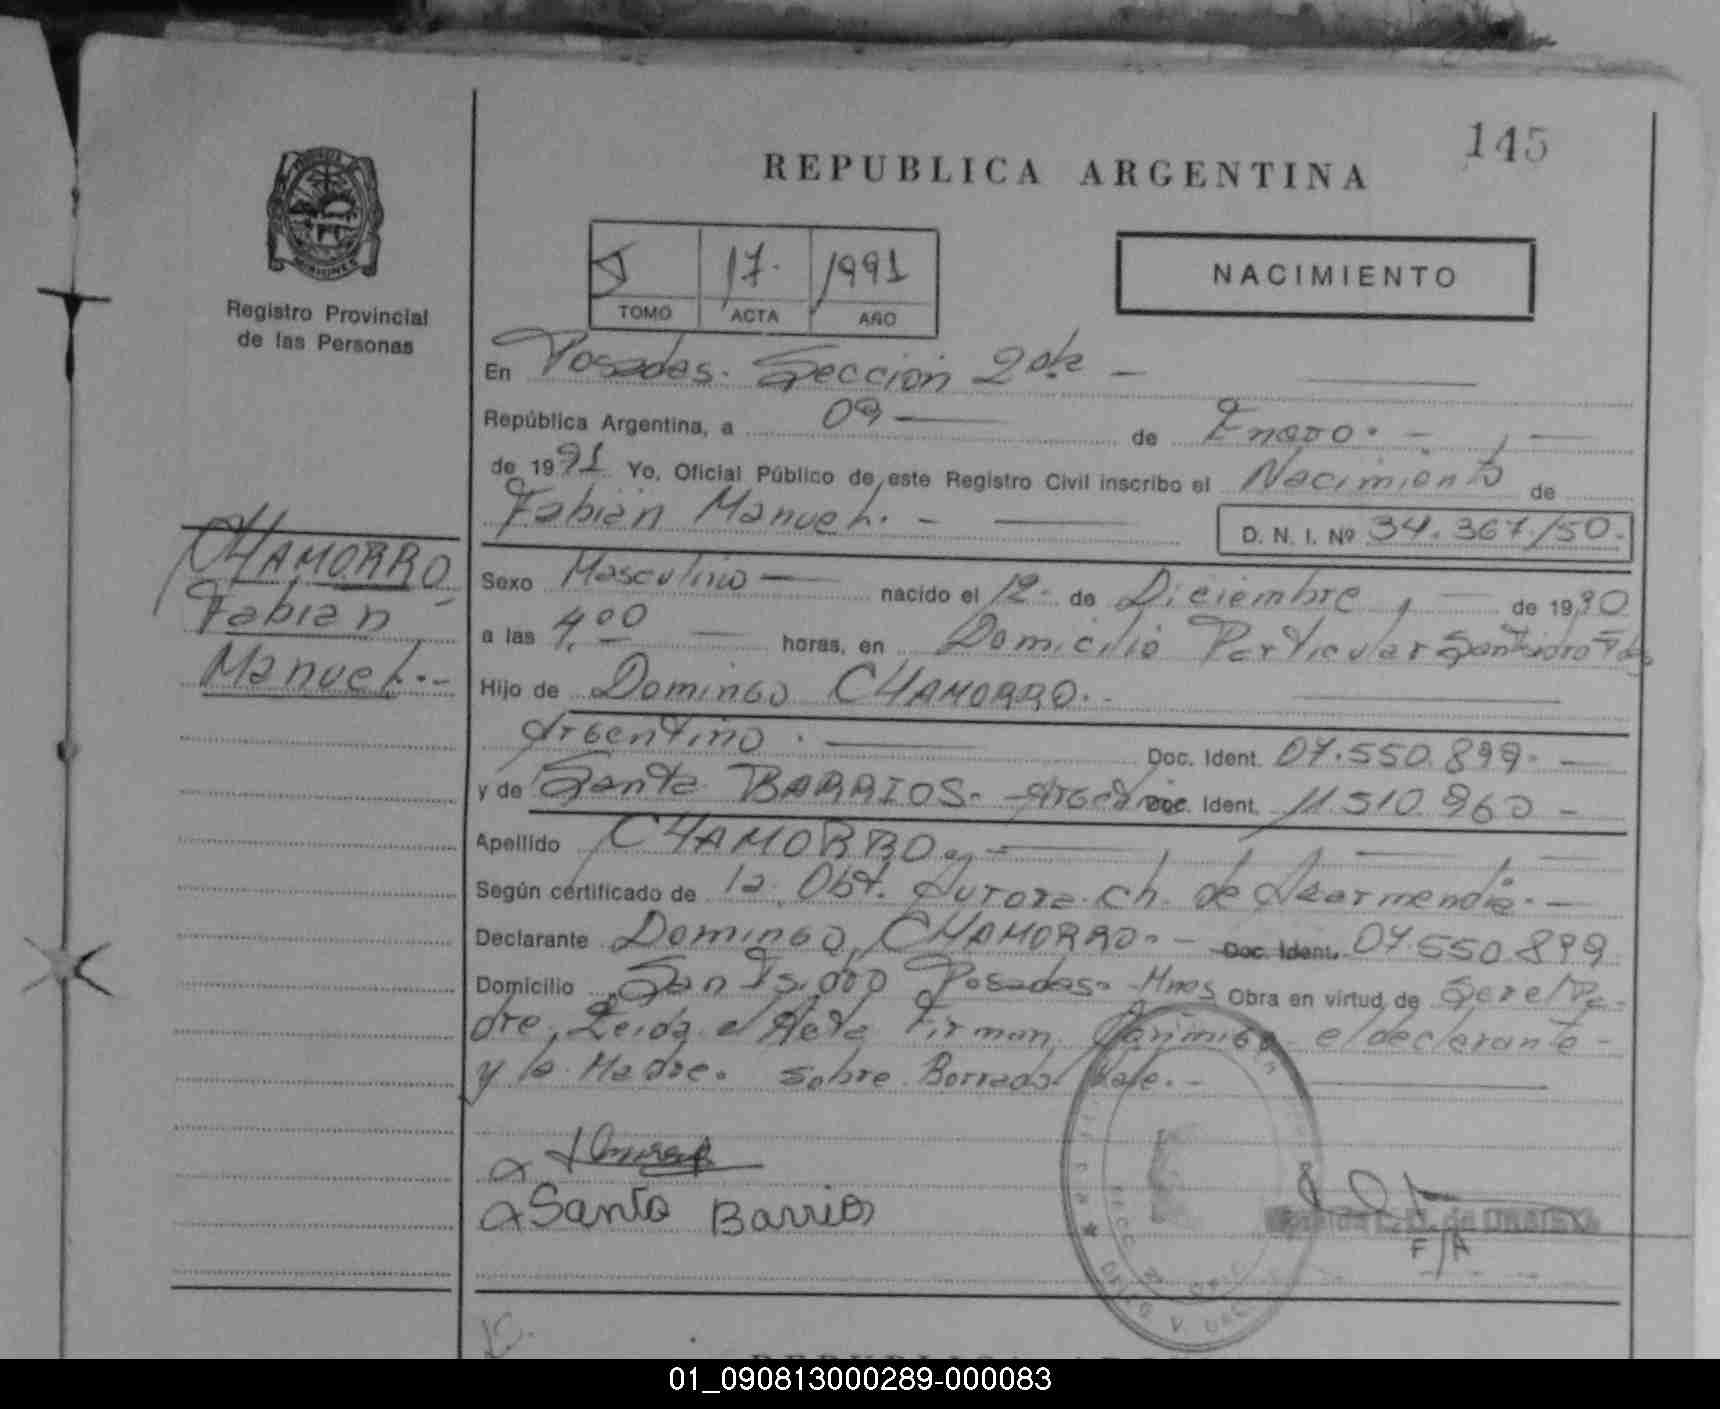 145
REPUBLICA ARGENTINA
MISIONES
Registro Provincial
de las Personas
17. 1991
TOMO ACTA AÑO
NACIMIENTO
En Posadas. Sección 2da —
República Argentina, a 09 — de Enero. -
de 1991 Yo, Oficial Público de este Registro Civil inscribo el Nacimiento de
Fabián Manuel. - D. N. I. Nº 34.367.150.
CHAMORRO
Fabián
Manuel.-
Sexo Masculino — nacido el 12 - de Diciembre, — de 1990
a las 4,00 — horas, en Domicilio Particular San Isidro Pdas
Hijo de Domingo CHAMORRO. -
Argentino. — Doc. Ident. 07.550.899. —
y de Santa BARRIOS. - Argentina Doc. Ident. 11.510.960 -
Apellido CHAMORRO
Según certificado de la Obt. Aurora Ch. de Azarmendia. —
Declarante Domingo CHAMORRO. - Doc. Ident. 07.550.899
Domicilio San Isidro Posadas. Mnes Obra en virtud de Ser el Pa-
dre, Leída el Acta Firman Conmigo el declarante -
y la Madre. Sobre Borrado Vale. -
Santa Barrios
F/A
01_090813000289-000083